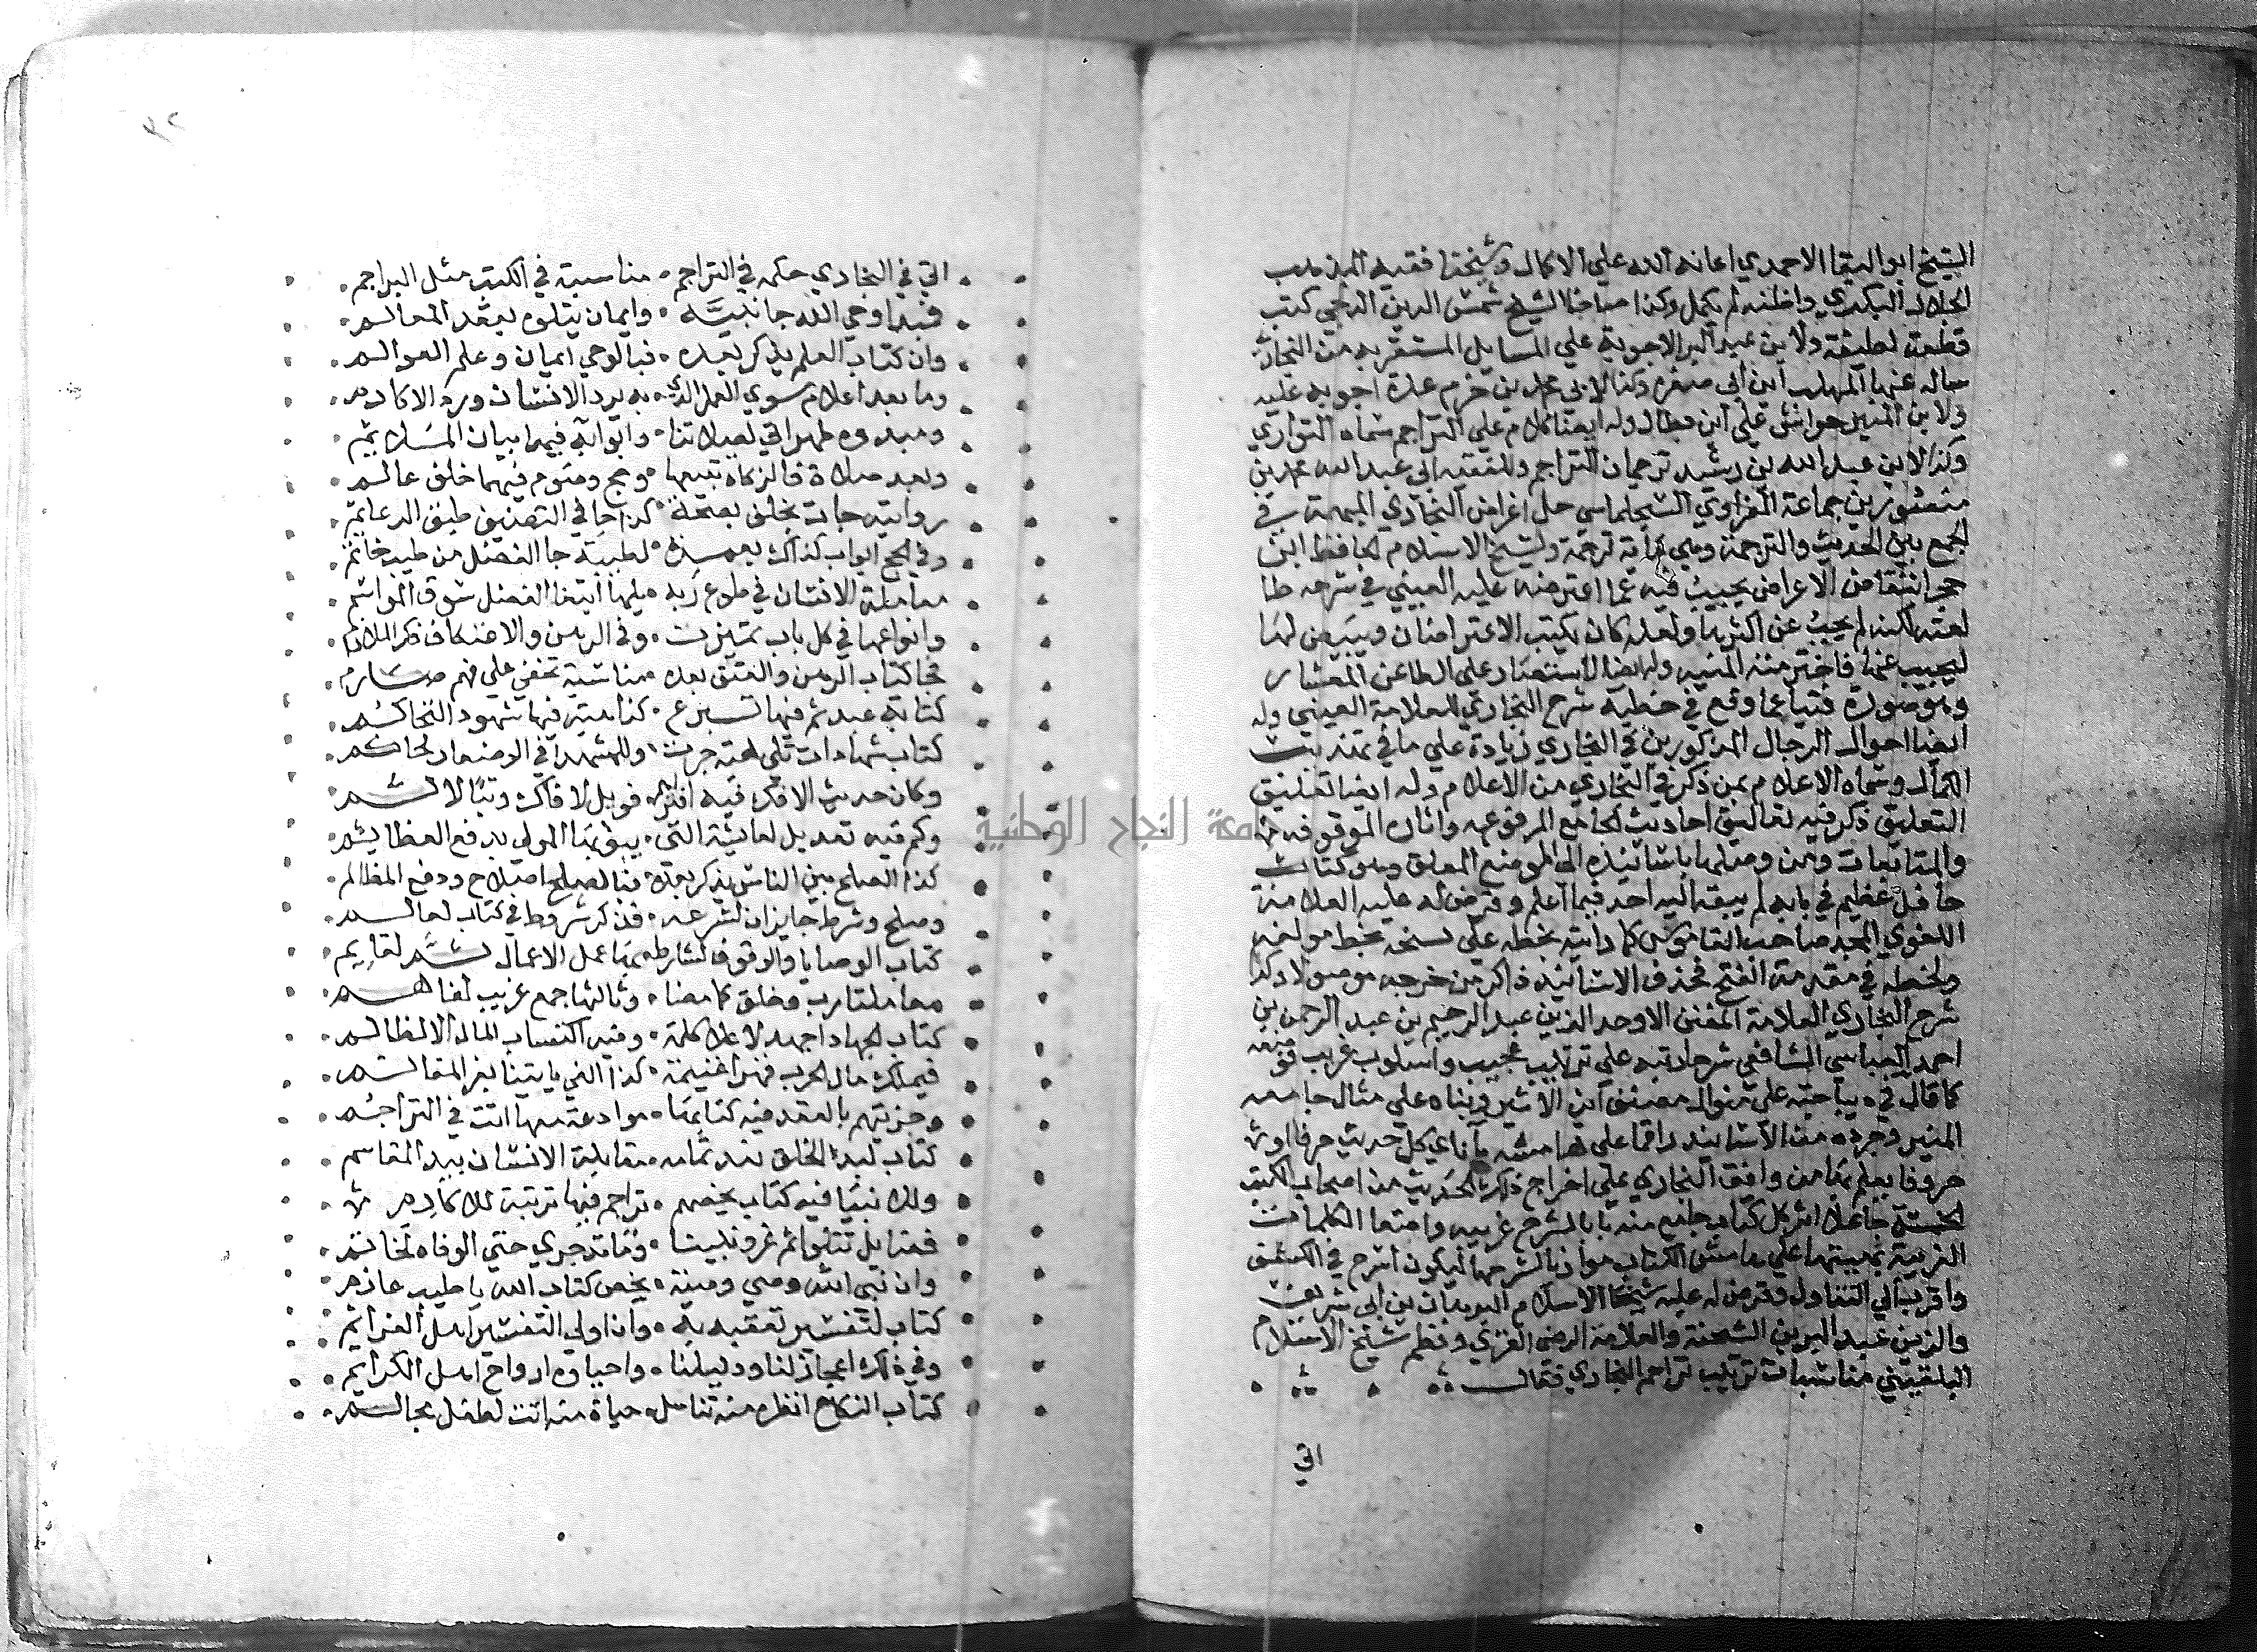 الشيخ ابو البقا الاحمدي اعانه الله علي الاكمال وشيخنا فقيه المذهب
الجلال البكري واظنه لم يكمل وكذا صاحبنا الشيخ شمس الدين الدلجي كتب
قطعة لطيفة ولابن عبد البر الاجوبة علي المسايل المستغربه من البخاري
ساله عنها المهلب ابن ابي صفره وكذا لابي محمد بن حزم عدة اجوبه عليه
ولابن المنير حواش علي ابن بطال وله ايضا كلام علي التراجم سماه المتواري
وكذا لابن عبد الله بن رشيد ترجمان التراجم وللفقيه ابي عبد الله محمد بن
منصور بن جماعة المغراوي السجلماسي حل اغراض البخاري المبهمة في
الجمع بين الحديث والترجمة وهي ماية ترجمة ولشيخ الاسلام الحافظ ابن
حجر انتقاض الاعراض يجيب فيه عما اعترضه عليه العيني في شرحه طا
لعته لكنه لم يجب عن اكثرها ولعله كان يكتب الاعتراضات ويبيض لها
ليجيب عنها فاخترمته المنيه وله ايضا الاستنصار علي الطاعن المعثار
وهو صورة فتيا عما وقع في خطبة شرح البخاري للعلامة العيني وله
ايضا احوال الرجال المذكورين في البخاري زيادة علي ما في تهذيب
الكمال وسماه الاعلام بمن ذكر في البخاري من الاعلام وله ايضا تغليق
التعليق ذكر فيه تعاليق احاديث الجامع المرفوعه واثاره الموقوفه
والمتابعات ومن وصلها باسانيده الي الموضع المعلق وهو كتاب
حافل عظيم في بابه لم يسبقه اليه احد فيما اعلم وقرض له عليه العلامة
اللغوي المجد صاحب القاموس كما رايته بخطه علي نسخة بخط مولفه
ولخصه في مقدمة الفتح بحذف الاسانيد ذاكرا من خرجه موصولا وكذا
شرح البخاري العلامة المفنن الاوحد الزين عبد الرحيم بن عبد الرحمن بن
احمد العباسي الشافعي شرحا رتبه علي ترتيب عجيب واسلوب غريب فوضعه
كما قال في ديباجته علي منوال مصنف ابن الاثير وبناه علي مثال جامعه
المنير وجرده من الاسانيد راقما علي هامشه بازاء كل حديث حرفا او
حروفا يعلم بها من وافق البخاري علي اخراج ذلك الحديث من اصحاب الكتب
الخمسة جاعلا اثر كل كتاب جامع منه بابا لشرح غريبه واضعا الكلمات
الغريبة بهيئتها علي هامش الكتاب موازيا لشرحها ليكون اسرع في الكشف
واقرب الي التناول وقرض له عليه شيخنا الاسلام البرهان بن ابي شريف
والزين عبد البر بن الشحنة والعلامة الرضي الغزي ونظم شيخ الاسلام
البلقيني مناسبات ترتيب تراجم البخاري فقال
اتي
اتي في البخاري حكمه في التراجم مناسبة في الكتب مثل البراجم
فمبدا وحي الله جا نبيه وايمان يتلوه بعقد المعالم
وان كتاب العلم يذكر بعده فبالوحي ايمان وعلم العوالم
وما بعد اعلام سوي العمل الذي به يرد الانسان ورد الاكارم
ومبدوه طهر اتي لصلاتنا وابوابه فيها بيان الملايم
وبعد صلاة فالزكاة تتبعها وحج وصوم فيهما خلف عالم
روايته جات بخلف بصحة كذا جا في التصنيف طبق الدعايم
وفي الحج ابواب كذاك بعمرة لطيبة جا الفضل من طيب خاتم
معاملة الانسان في طوع ربه يليها ابتغا الفضل سوق المواسم
وانواعها في كل باب تميزت وفي الرهن والاعتكاف فك الملازم
فجا كتاب الرهن والعتق بعده مناسبة تخفي علي فهم صارم
كتابة عبد ثم فيها تبرع كذا هبة فيها شهود التحاكم
كتاب شهادات تلي هبة جرت وللشهدا في الوصف امر لحاكم
وكان حديث الافك فيه افتراهم فويل لافاك وتبا لاثم
وكم فيه تعديل لعايشة التي يبرئها المولي بدفع العظايم
كذا الصلح بين الناس يذكر بعده فبالصلح اصلاح ودفع المظالم
وصلح وشرط جايزان لشرعه فذكر شروط في كتاب لعالم
كتاب الوصايا والوقوف لشارط بها عمل الاعمال تم لقايم
معاملتا رب وخلق كما مضا وثالثها جمع غريب لفاهم
كتاب الجهاد اجهد لاعلا كلمة وفيه اكتساب المال الا لظالم
فيملك مال الحرب قهرا غنيمة كذا الفي ياتينا بعز المغانم
وجزيتهم بالعقد فيه كتابها موادعة معها اتت في التراجم
كتاب لبدا الخلق بعد تمامه مقابلة الانسان ببدا المقاسم
وللانبيا فيه كتاب يخصهم تراجم فيها رتبة للاكارم
فضايل تتلو ثم غزو نبينا وما قد جري حتي الوفاه لخاتم
وان نبي الله وصي وصية يخص كتاب الله يا طيب عازم
كتاب لتفسير تعقبه به وان اولي التفسير اهل العزايم
وفي ذاك اعجاز لنا ودليلنا واحياوه ارواح اهل الكرايم
كتاب النكاح انظره منه تناسل حياة منه اتت لطفل محالم
جامعة النجاح الوطنية